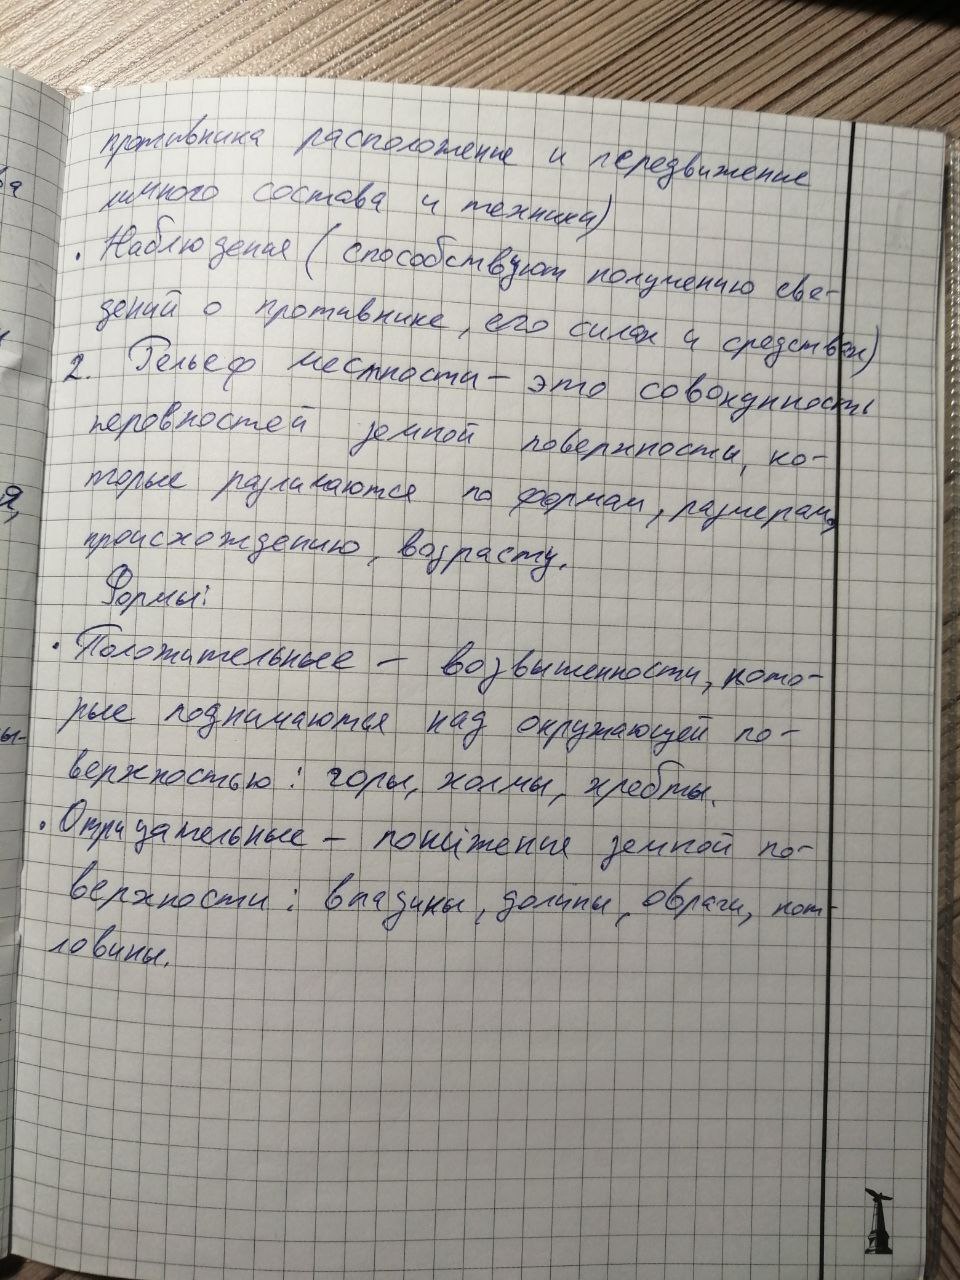 противника расположение и передвижение
личного состава и техники)
. Наблюдения (способствуют получению све-
дений о противнике, его силах и средствах)
2. Рельеф местности - это совокупность
неровностей земной поверхности, ко-
торые различаются по формам, размерам,
происхождению, возрасту.
Формы:
. Положительные - возвышенности, кото-
рые поднимаются над окружающей по-
верхностью: горы, холмы, хребты.
. Отрицательные - понижение земной по-
верхности: впадины, долины, овраги, кот-
ловины.